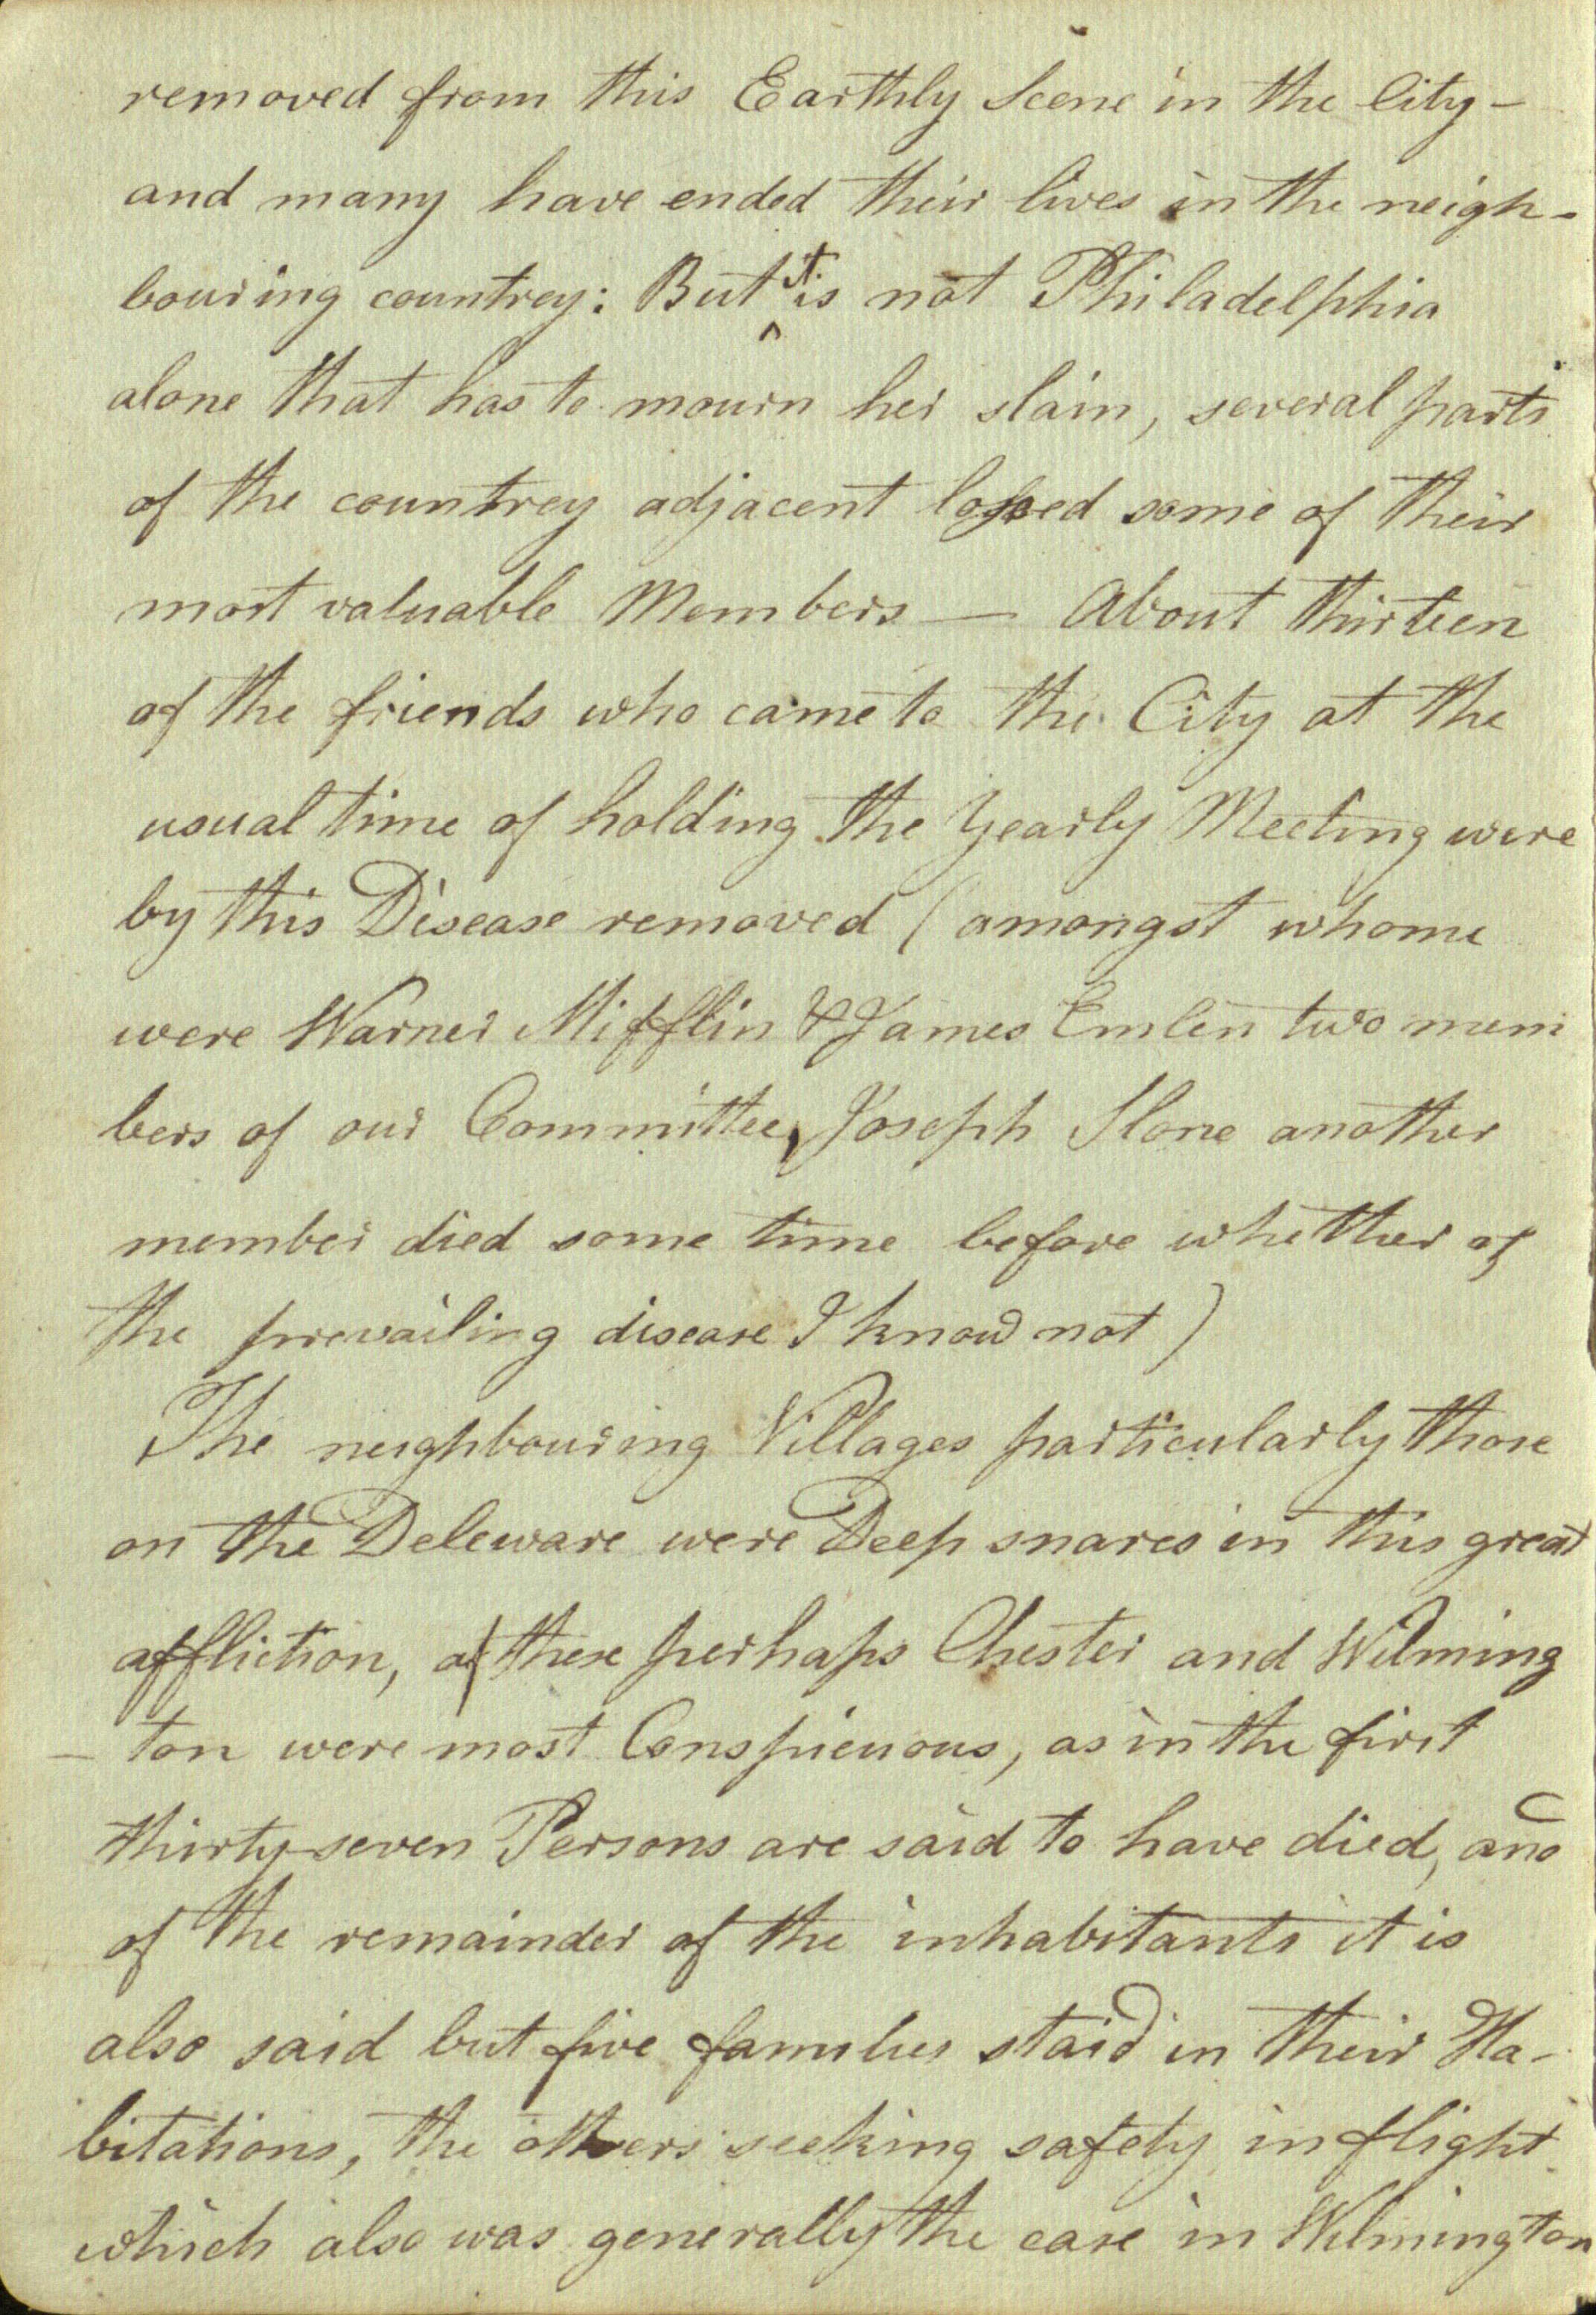 removed from this Earthly Scene in the City -
and many have ended their lives in the neigh-
bouring countrey: But it is not Philadelphia
alone that has to mourn her slain, several parts
of the countrey adjacent lossed some of their
most valuable Members — About thirteen
of the friends who came to the City at the
usual time of holding the Yearly Meeting were
by this Disease removed (amongst whome
were Warner Mifflin & James Emlen two mem
bers of our Committee, Joseph Slone another
member died some time before whether of
the prevailing disease I know not)
The neighbouring Villages particularly those
on the Deleware were Deep snares in this great
affliction, of these perhaps Chester and Wilming
- ton were most Conspicuous, as in the first
thirty-seven Persons are said to have died, and
of the remainder of the inhabitants it is
also said but five families staid in their Ha-
bitations, the others seeking safety in flight
which also was generally the case in Wilmington